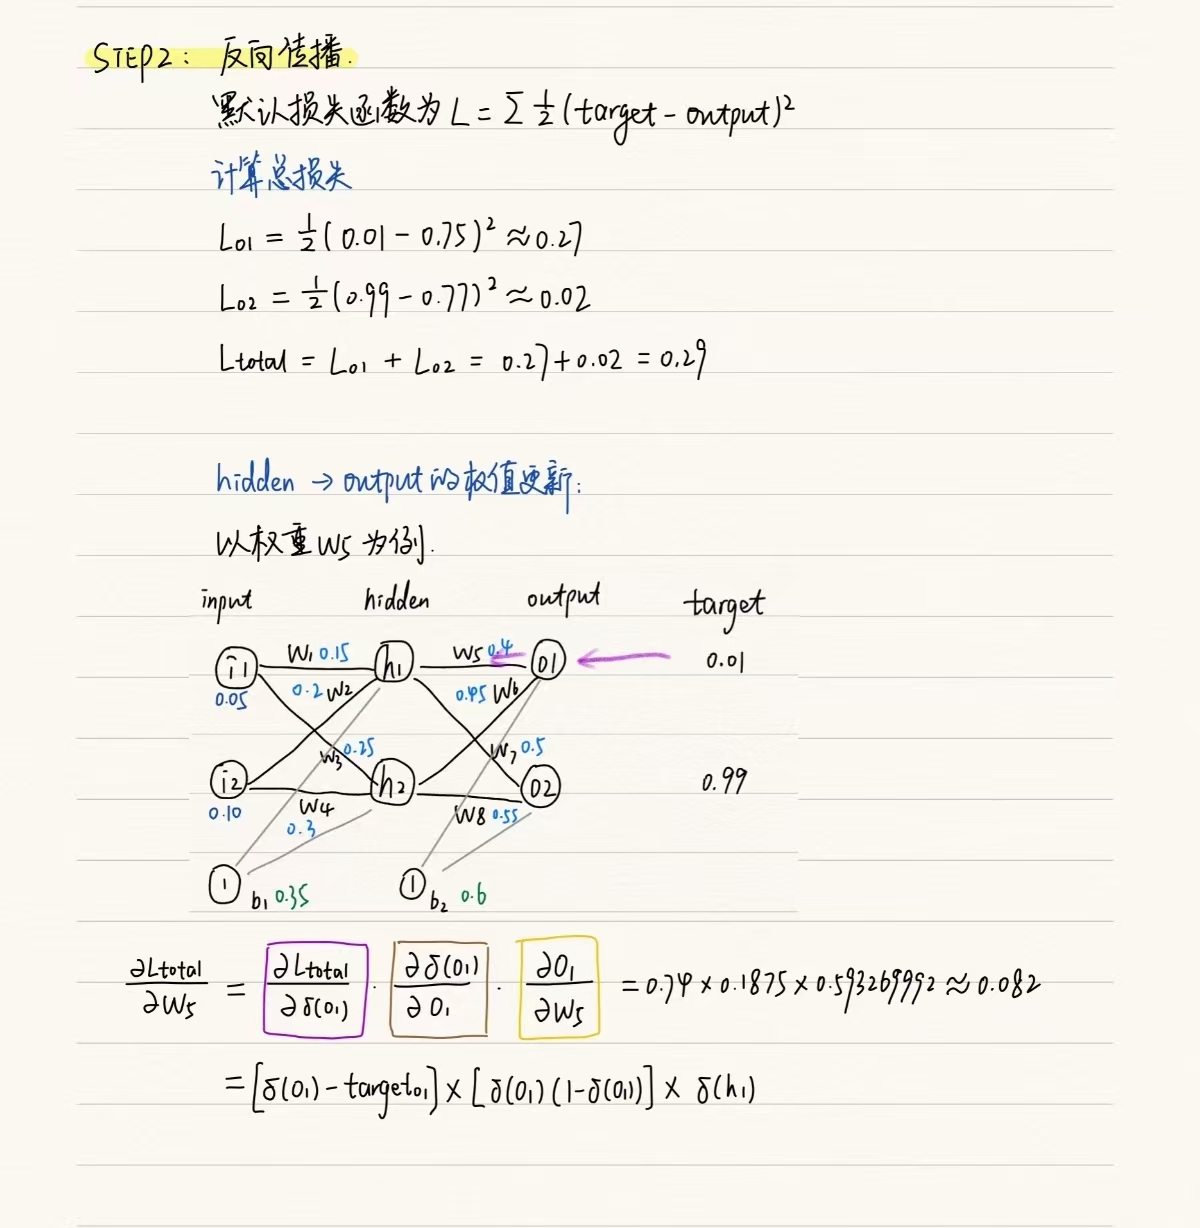 STEP2: 反向传播.
默认损失函数为 L = Σ ½ (target - output)²
计算总损失
Lo1 = ½ (0.01 - 0.75)² ≈ 0.27
Lo2 = ½ (0.99 - 0.77)² ≈ 0.02
Ltotal = Lo1 + Lo2 = 0.27 + 0.02 = 0.29
hidden → output 的权值更新:
以权重 W5 为例.
input hidden output target
i1 W1 0.15 h1 W5 0.4 O1 0.01
0.05 0.2 W2 0.45 W6
W3 0.25 W7 0.5
i2 h2 O2 0.99
0.10 W4 W8 0.55
0.3
1 b1 0.35 1 b2 0.6
∂Ltotal/∂W5 = ∂Ltotal/∂δ(O1) · ∂δ(O1)/∂O1 · ∂O1/∂W5 = 0.74 × 0.1875 × 0.593269992 ≈ 0.082
= [δ(O1) - targeto1] × [δ(O1)(1-δ(O1))] × δ(h1)